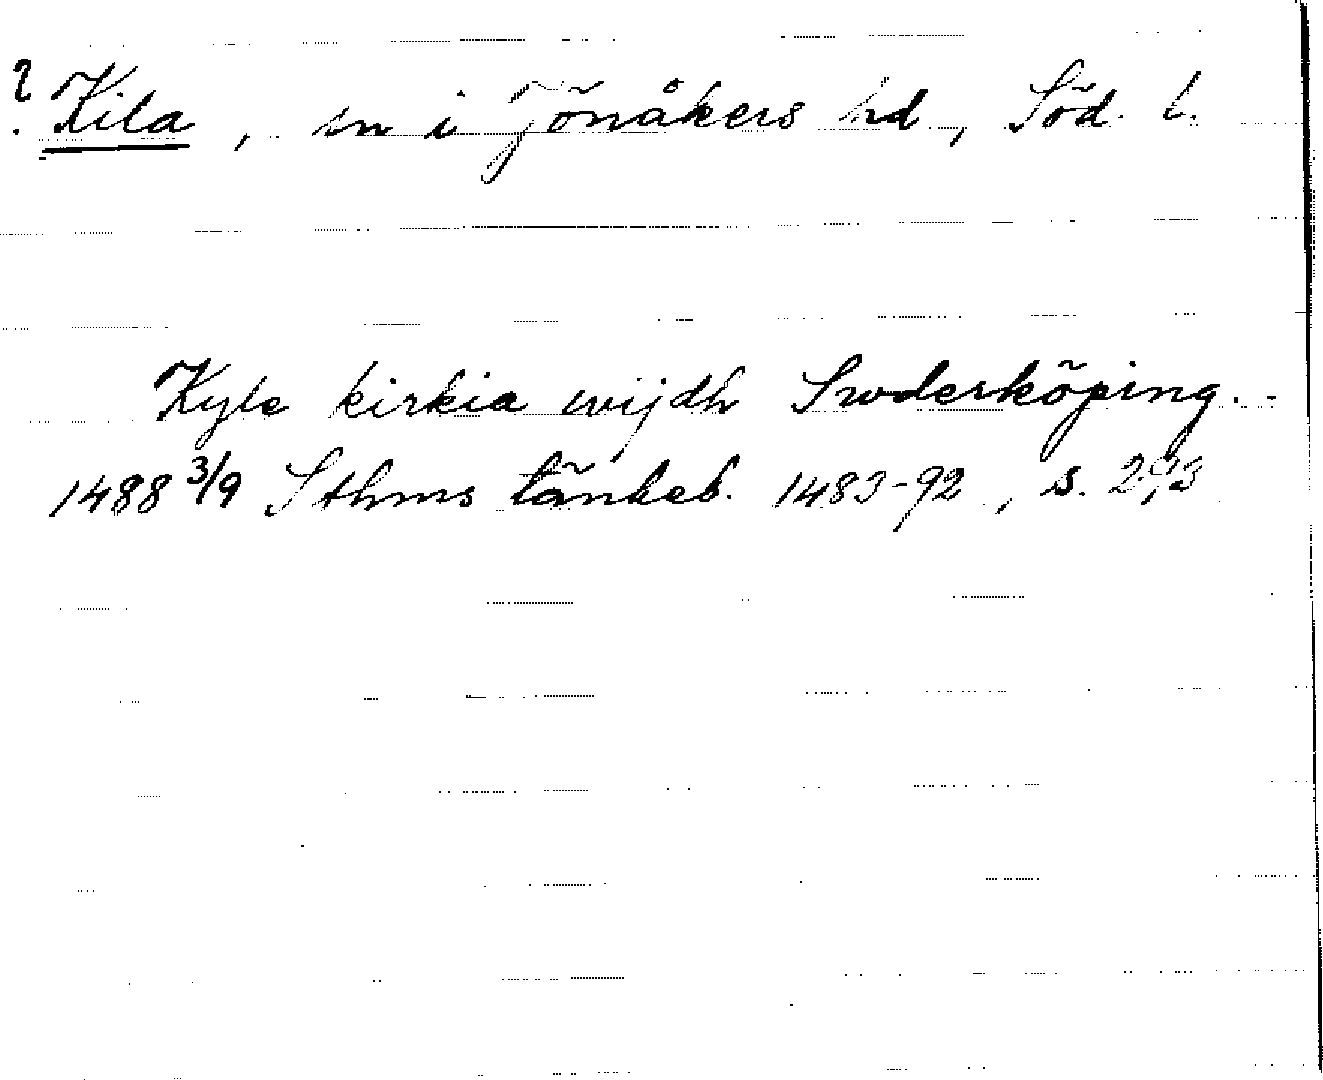 ? Kila, sn i Jönåkers hd, Söd. l.
Kyle kirkia wijdh Swderköping.-
1488 3/9 Sthms tänkeb. 1483-92, s. 293